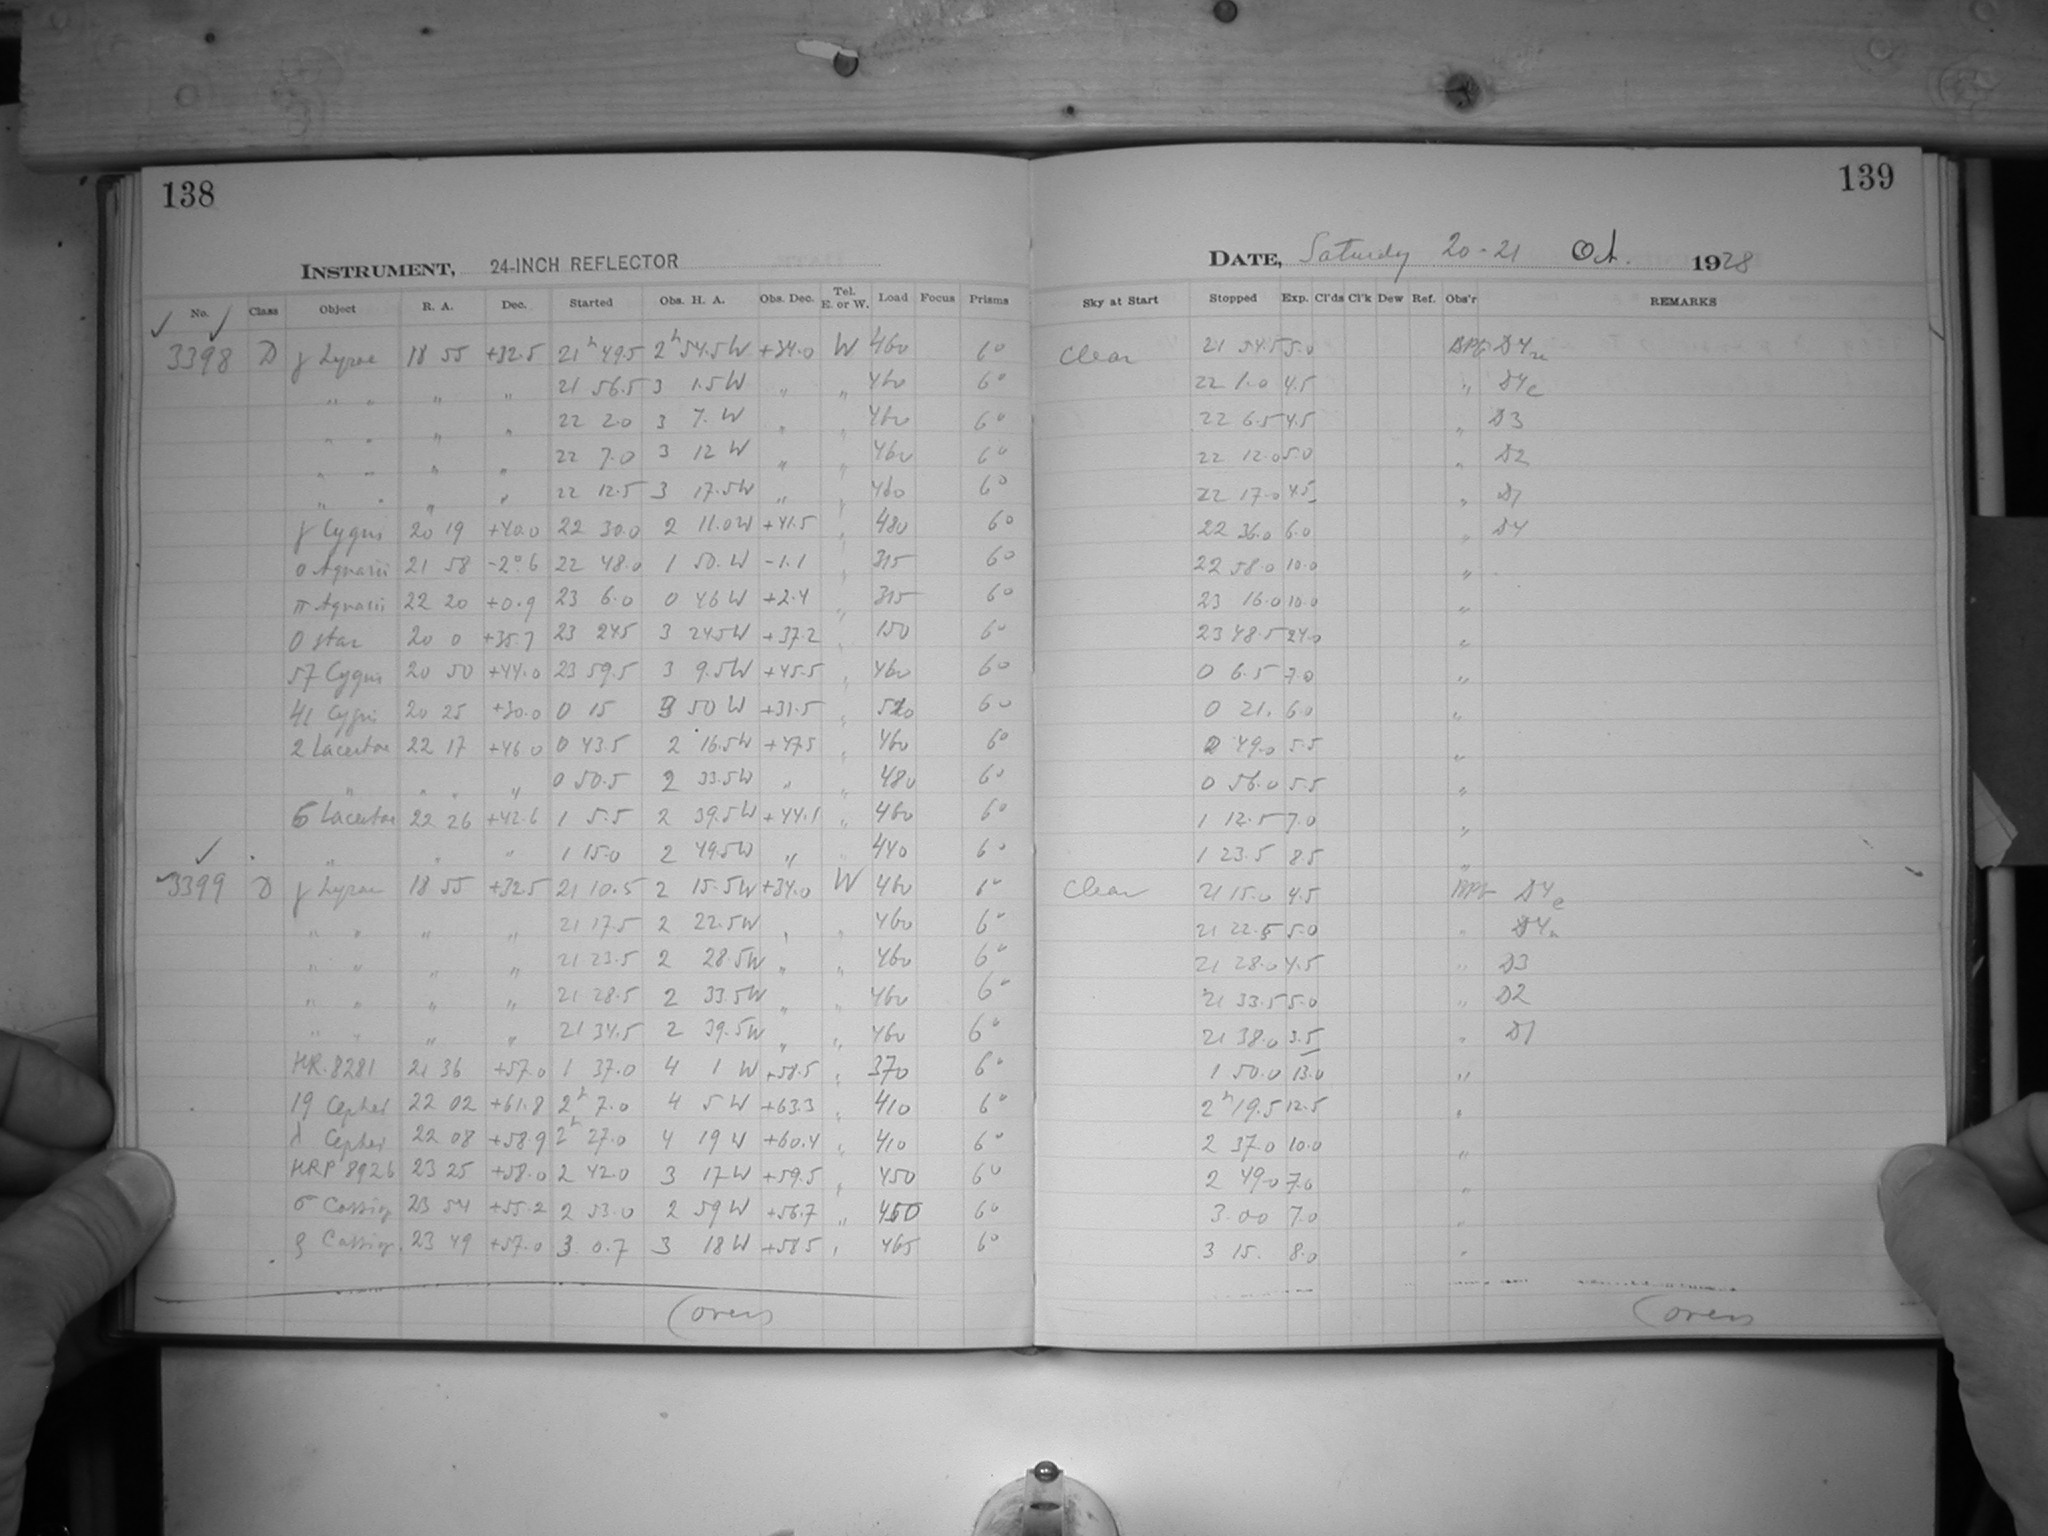 138
139
INSTRUMENT, 24-INCH REFLECTOR
DATE, Saturday 20-21 Oct. 1928
No. Class Object R. A. Dec. Started Obs. H. A. Obs. Dec. Tel. E. or W. Load Focus Prisms Sky at Start Stopped Exp. Cl'ds Cl'k Dew Ref. Obs'r REMARKS
✓ ✓
3398 D γ Lyrae 18 55 +32.5 21ʰ 49.5 2ʰ 54.5 W +34.0 W 460 6° Clear 21 54.5 5.0
" " " " 21 56.5 3 1.5 W " " 460 6° 22 1.0 4.5 " D4c
" " " " 22 2.0 3 7. W " " 460 6° 22 6.5 4.5 " D3
" " " " 22 7.0 3 12 W " " 460 6° 22 12.0 5.0 " D2
" " " " 22 12.5 3 17.5 W " " 460 6° 22 17.0 4.5 " D1
γ Cygni 20 19 +40.0 22 30.0 2 11.0 W +41.5 " 480 6° 22 36.0 6.0 " D4
o Aquarii 21 58 -2°.6 22 48.0 1 50. W -1.1 " 315 6° 22 58.0 10.0 "
π Aquarii 22 20 +0.9 23 6.0 0 46 W +2.4 " 315 6° 23 16.0 10.0 "
O star 20 0 +35.7 23 24.5 3 24.5 W +37.2 " 150 6° 23 48.5 24.0 "
57 Cygni 20 50 +44.0 23 59.5 3 9.5 W +45.5 " 460 6° 0 6.5 7.0 "
41 Cygni 20 25 +30.0 0 15 3 50 W +31.5 " 520 6° 0 21. 6.0 "
2 Lacertae 22 17 +46.0 0 43.5 2 16.5 W +47.5 " 460 6° 0 49.0 5.5 "
" " " " 0 50.5 2 33.5 W " " 480 6° 0 56.0 5.5 "
6 Lacertae 22 26 +42.6 1 5.5 2 39.5 W +44.1 " 460 6° 1 12.5 7.0 "
✓ " " " 1 15.0 2 49.5 W " " 440 6° 1 23.5 8.5 "
✓ 3399 D γ Lyrae 18 55 +32.5 21 10.5 2 15.5 W +34.0 W 460 6° Clear 21 15.0 4.5 D4c
" " " " 21 17.5 2 22.5 W " " 460 6° 21 22.5 5.0 "
" " " " 21 23.5 2 28.5 W " " 460 6° 21 28.0 4.5 " D3
" " " " 21 28.5 2 33.5 W " " 460 6° 21 33.5 5.0 " D2
" " " " 21 34.5 2 39.5 W " " 460 6° 21 38.0 3.5 " D1
HR. 8281 21 36 +57.0 1 37.0 4 1 W +58.5 " 370 6° 1 50.0 13.0 "
19 Cephei 22 02 +61.8 2ʰ 7.0 4 5 W +63.3 " 410 6° 2ʰ 19.5 12.5 "
λ Cephei 22 08 +58.9 2ʰ 27.0 4 19 W +60.4 " 410 6° 2 37.0 10.0 "
HRP 8926 23 25 +58.0 2 42.0 3 17 W +59.5 " 450 6° 2 49.0 7.0 "
σ Cassiop 23 54 +55.2 2 53.0 2 59 W +56.7 " 450 6° 3 00 7.0 "
ρ Cassiop. 23 49 +57.0 3 0.7 3 18 W +58.5 " 465 6° 3 15. 8.0 "
(over)
(over)